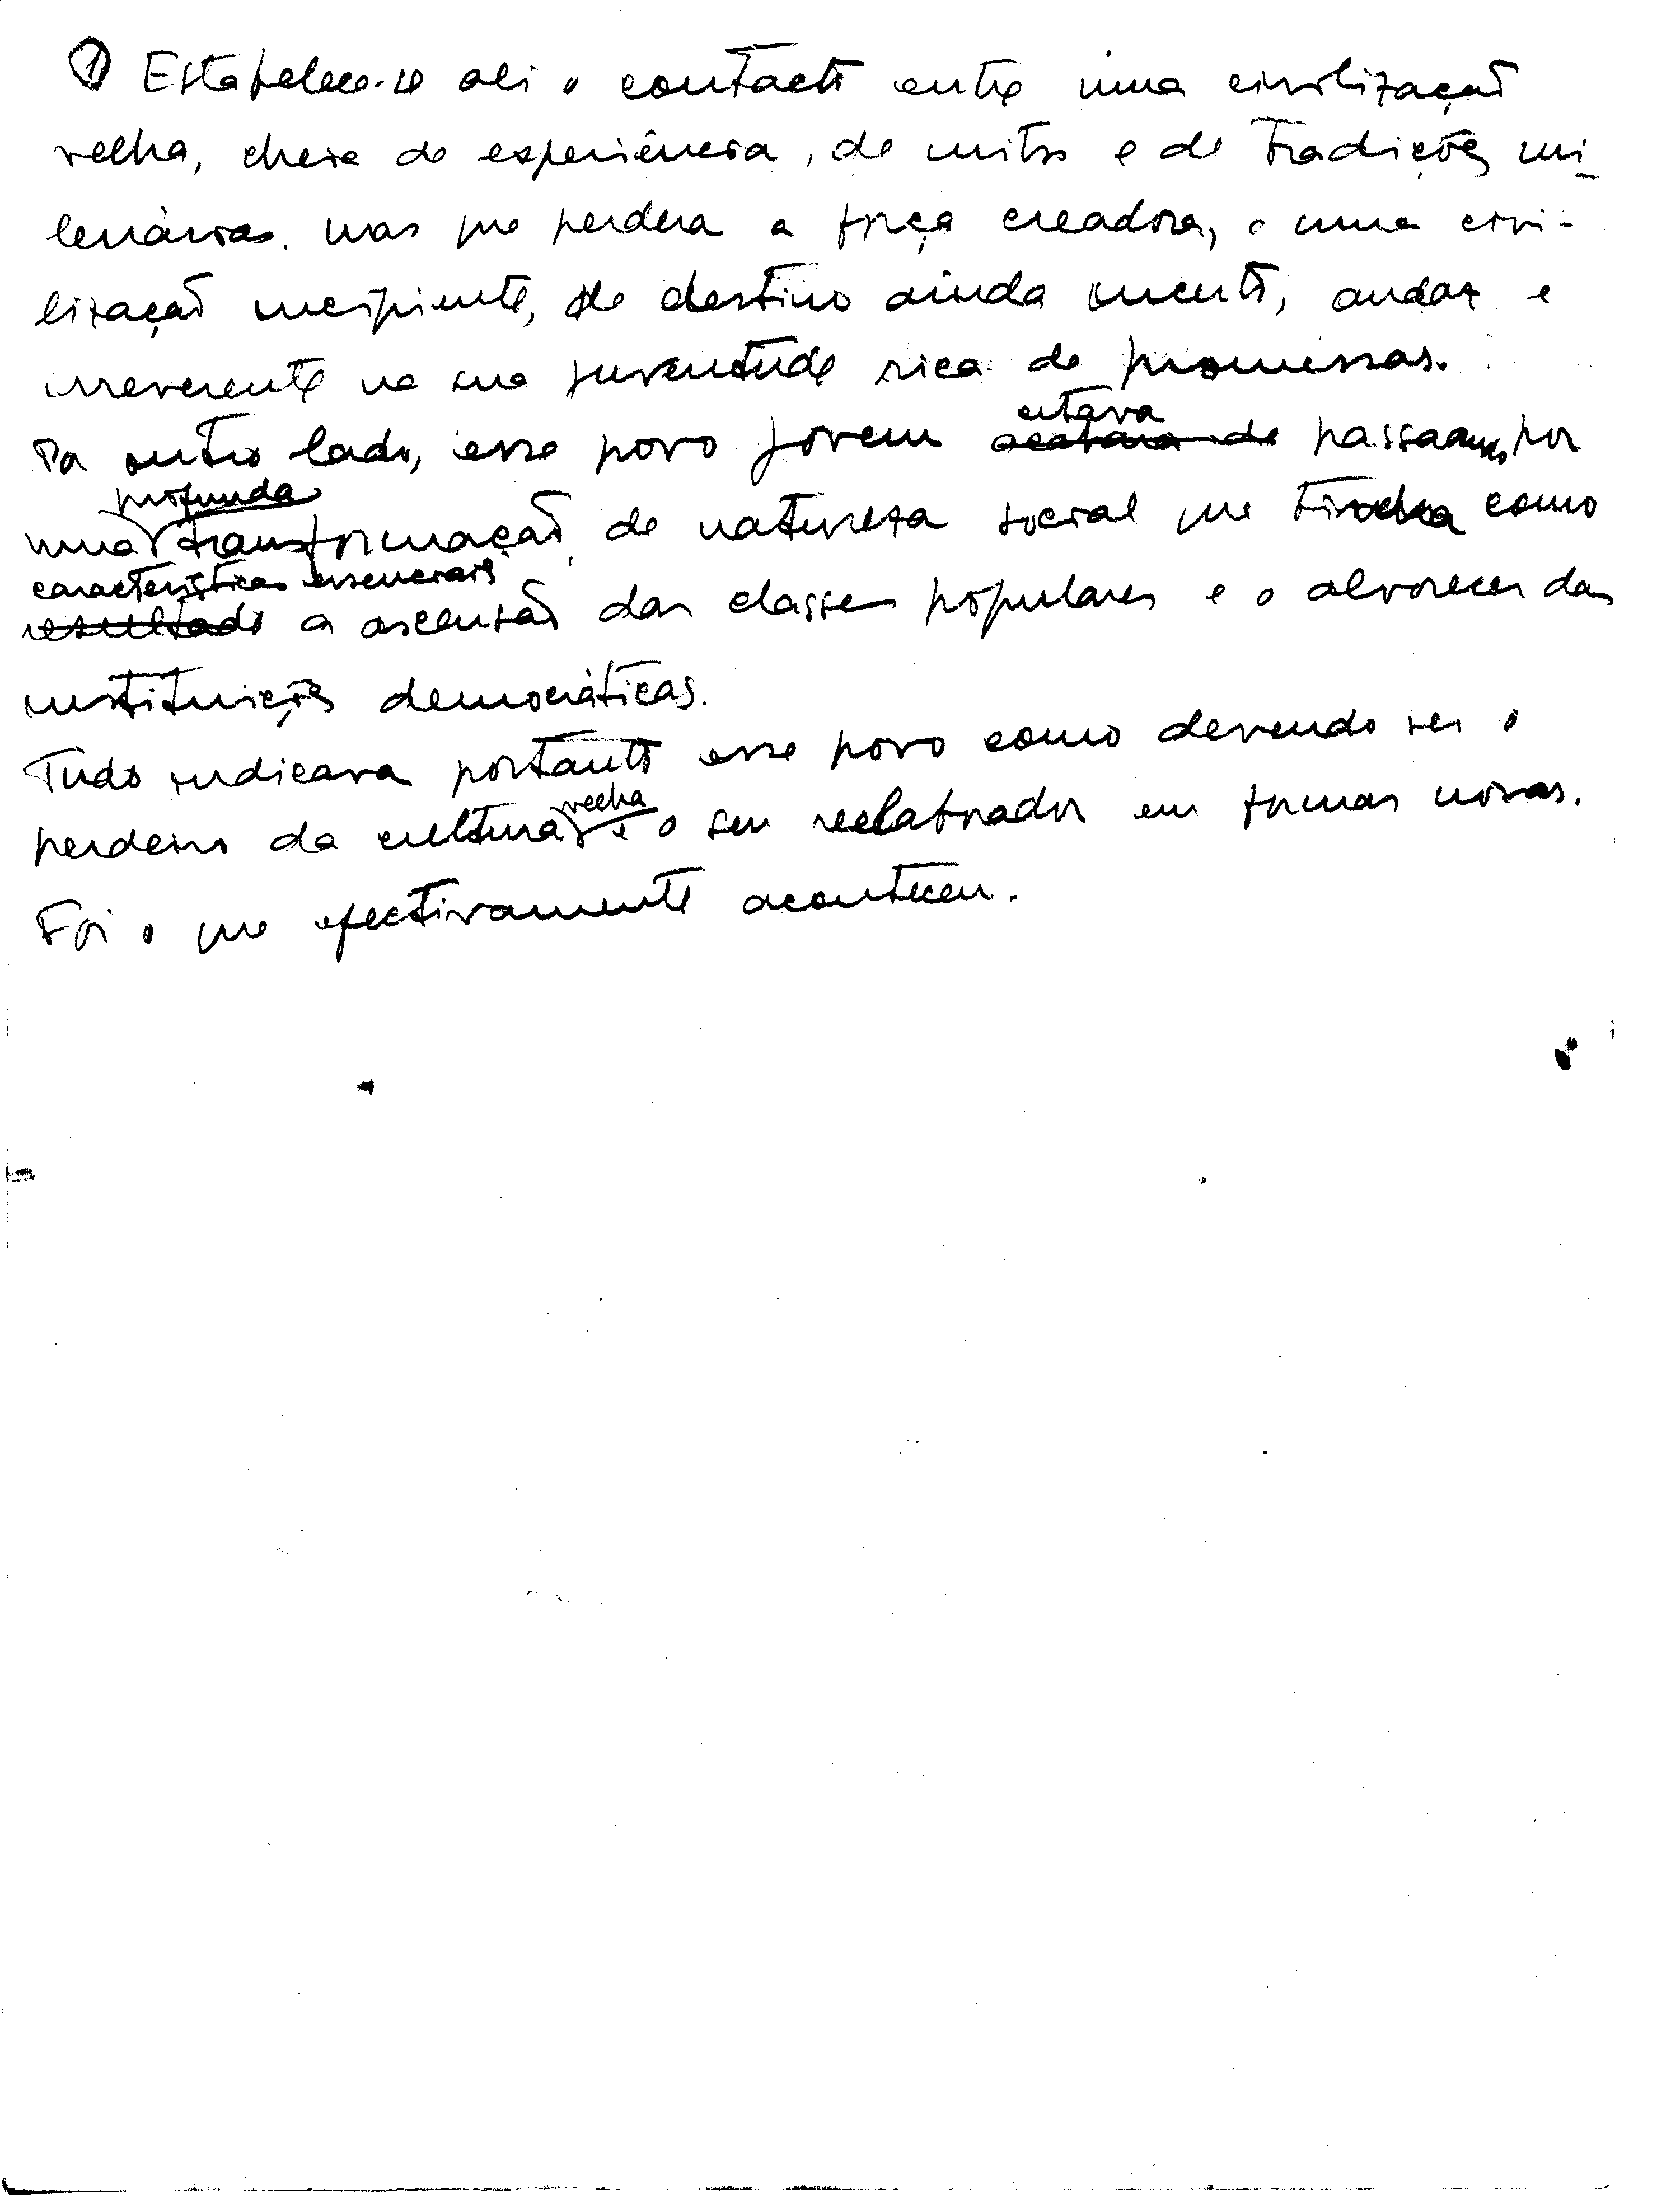 ① Estabelece-se ali o contacto entre uma civilização
velha, cheia de experiência, de mitos e de tradições mi-
lenárias, mas que perdera a força creadora, e uma civi-
lização incipiente, de destino ainda incerto, audaz e
irreverente na sua juventude rica de promessas.
estava
Por outro lado, esse povo jovem acabava de passando por
profunda
uma transformação de natureza social que tinha como
características essenciais
resultado a ascensão das classes populares e o alvorecer das
instituições democráticas.
Tudo indicava portanto esse povo como devendo ser o
velha
herdeiro da cultura e o seu reelaborador em formas novas.
Foi o que efectivamente aconteceu.